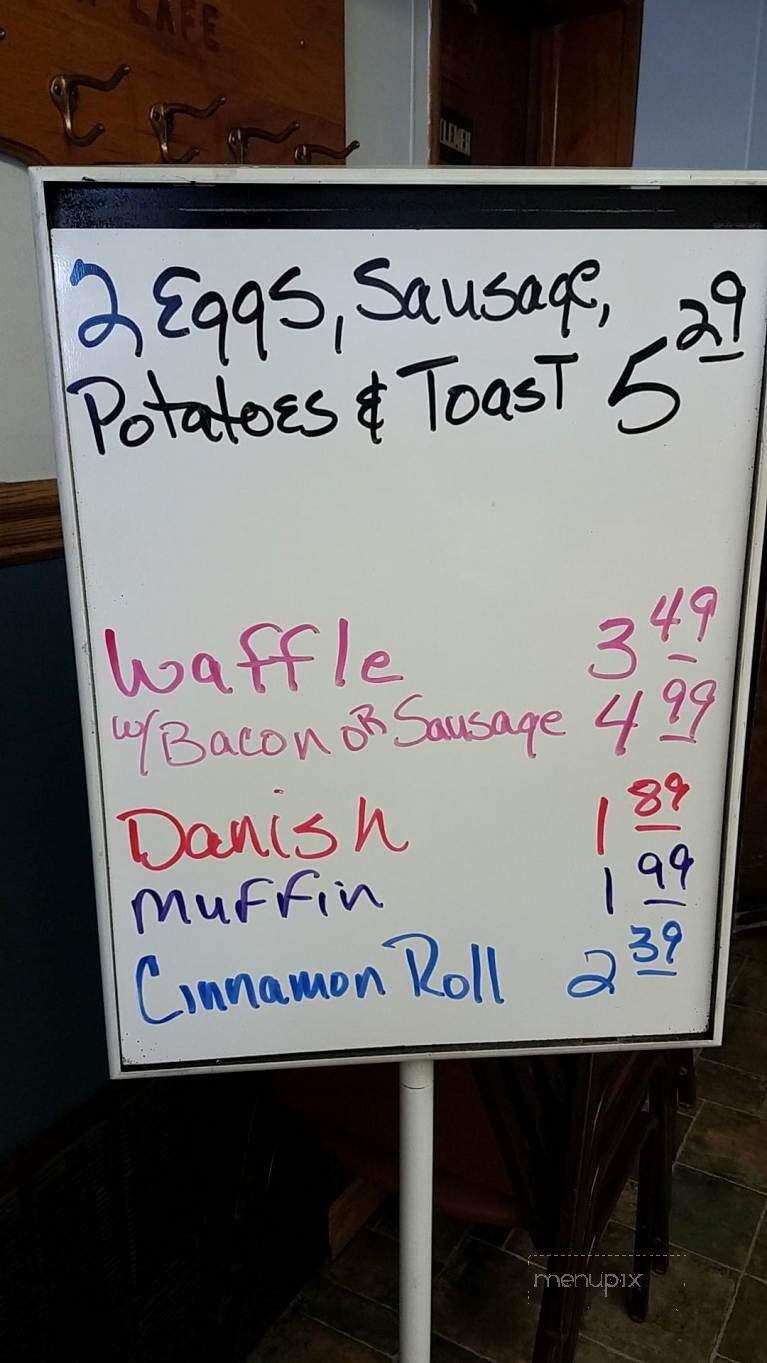 CAFE
2 Eggs, Sausage,
Potatoes & Toast 5 29
Waffle 3 49
w/ Bacon or Sausage 4 99
Danish 1 89
Muffin 1 99
Cinnamon Roll 2 39
menupix